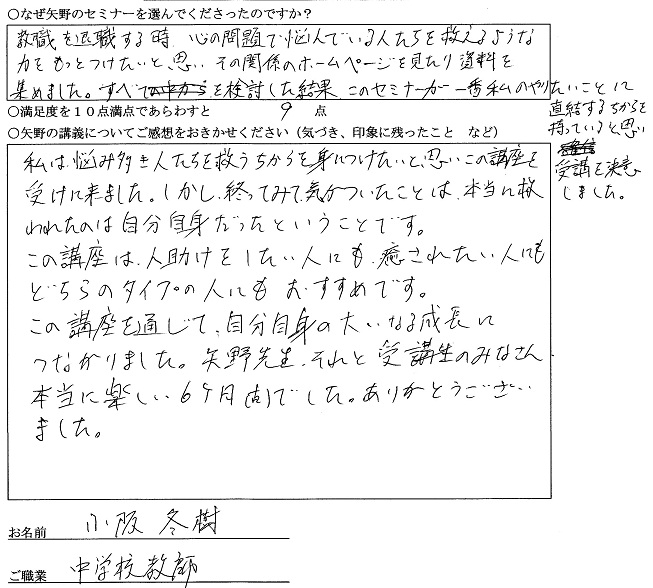 ○なぜ矢野のセミナーを選んでくださったのですか？
教職を退職する時、心の問題で悩んでいる人たちを救えるような
力をもっとつけたいと思い、その関係のホームページを見たり資料を
集めました。すべてを検討した結果、このセミナーが一番私のやりたいことに
直結するちからを
持っていると思い
受講を決意
しました。
○満足度を１０点満点であらわすと 9 点
○矢野の講義についてご感想をおきかせください（気づき、印象に残ったこと など）
私は悩み多き人たちを救うちからを身につけたいと思いこの講座を
受けに来ました。しかし、終ってみて気がついたことは、本当に救
われたのは自分自身だったということです。
この講座は、人助けをしたい人にも、癒されたい人にも
どちらのタイプの人にもおすすめです。
この講座を通じて、自分自身の大いなる成長に
つながりました。矢野先生、それと受講生のみなさん、
本当に楽しい6ヶ月間でした。ありがとうござい
ました。
お名前 小阪 冬樹
ご職業 中学校教師